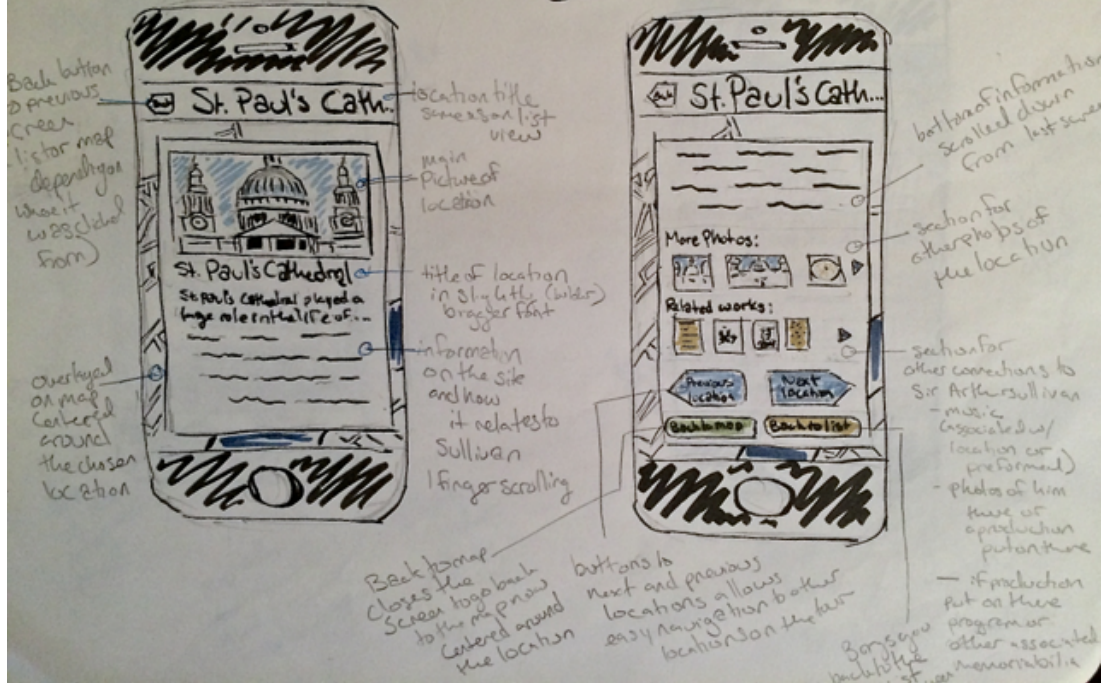 Back button
to previous
screen
list or map
depending on
where it
was clicked
from)
Back
St. Paul's Cath...
location title
same as on list
view
main
Picture of
location
St. Paul's Cathedral
St. Paul's Cathedral played a
huge role in the life of...
title of location
in slightly (bolder)
bigger font
information
on the site
and how
it relates to
Sullivan
1 finger scrolling
overlayed
on map
centered
around
the chosen
location
Back
St. Paul's Cath...
bottom of information
scrolled down
from last screen
More Photos:
section for
other photos of
the location
Related works:
section for
other connections to
Sir Arthur Sullivan
- music
(associated w/
location or
preformed)
- photos of him
there or
a production
put on there
- if production
put on there
program or
other associated
memoriabilia
Previous
location
Next
location
Back to map
Back to list
Back to map
closes the
screen to go back
to the map now
centered around
the location
buttons to
next and previous
locations allows
easy navigation to other
locations on the tour
Brings you
back to the
list